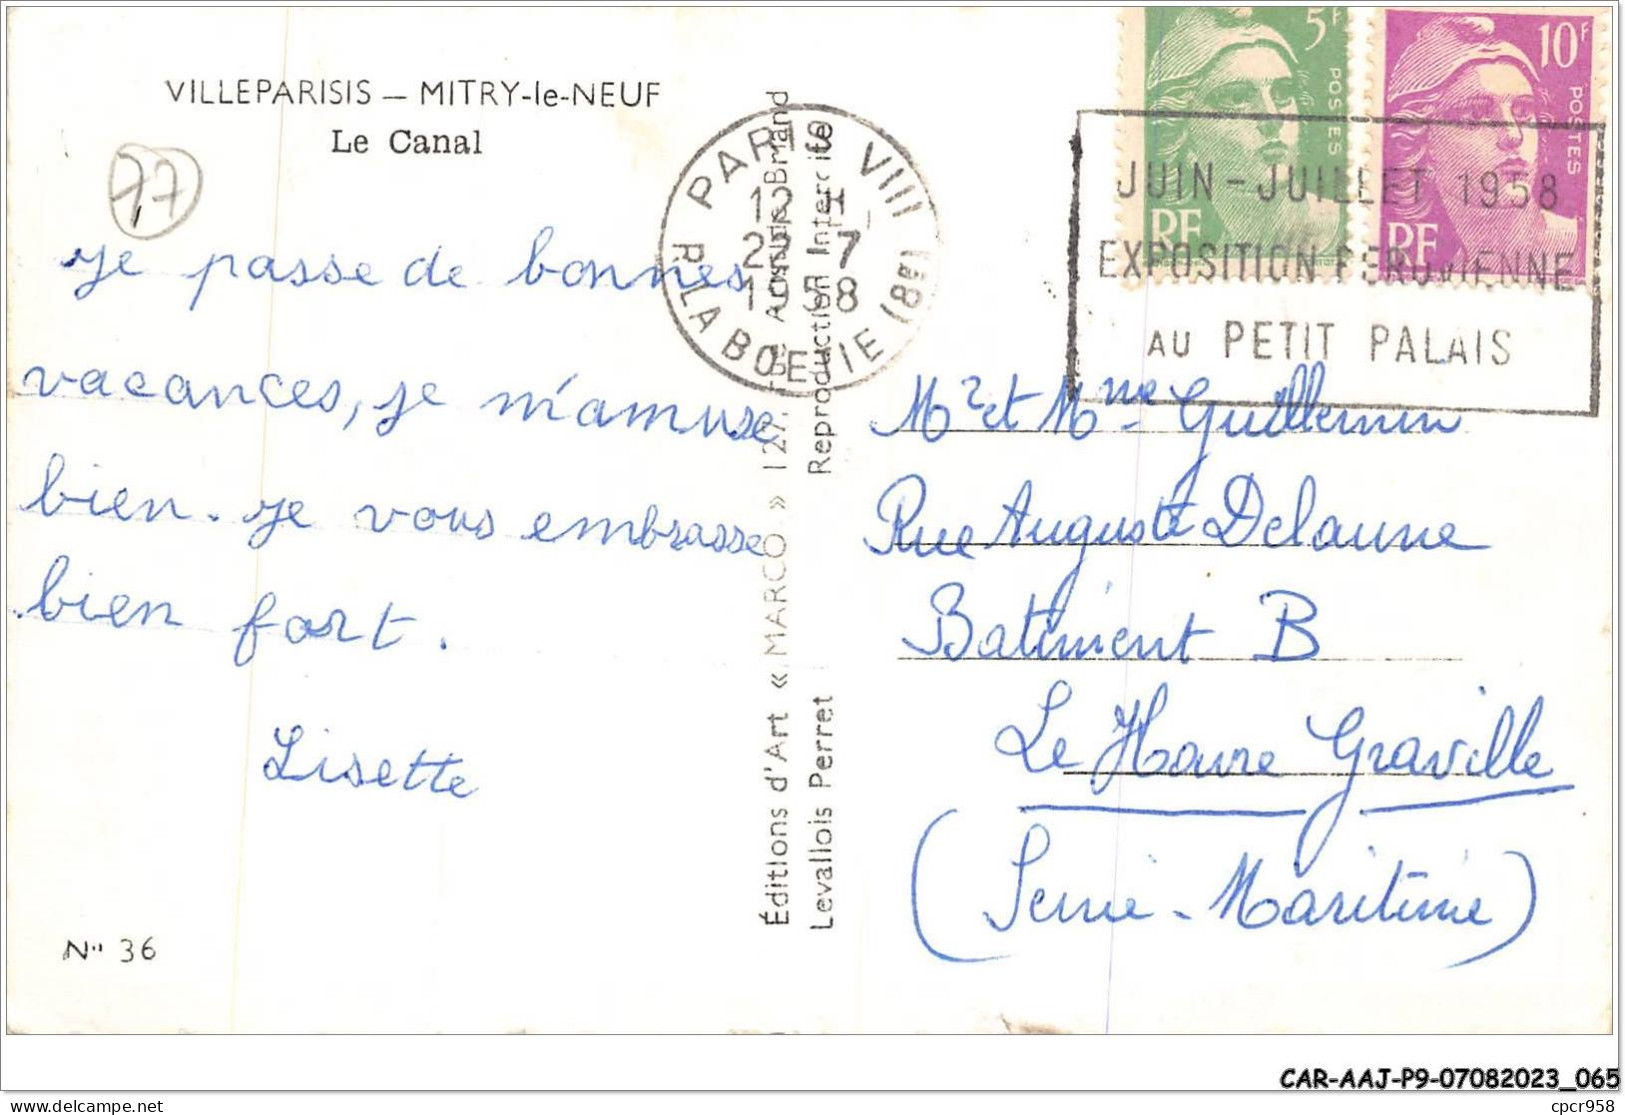 VILLEPARISIS — MITRY-le-NEUF
Le Canal
77
Je passe de bonnes
vacances, je m'amuse
bien. Je vous embrasse
bien fort.
Lisette
N° 36
Éditions d'Art « MARCO » 127, Briand
Levallois Perret Reproduction Interdite
PARIS VIII
12 H
7
1958
R. LA BOETIE (8e)
5F
POSTES
RF
10F
POSTES
RF
JUIN - JUILLET 1958
EXPOSITION PERUVIENNE
AU PETIT PALAIS
Mr et Mme Guillemin
Rue Auguste Delaune
Batiment B
Le Havre Graville
(Seine - Maritime)
CAR-AAJ-P9-07082023_065
delcampe.net
cpcr958